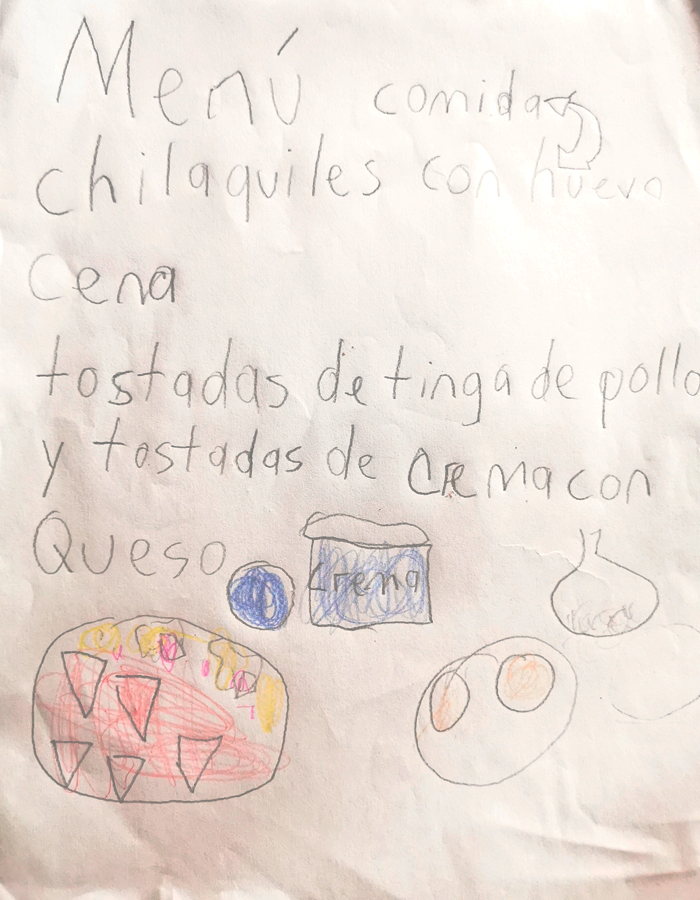 Menú comida
chilaquiles con huevo
Cena
tostadas de tinga de pollo
y tostadas de crema con
Queso
crema